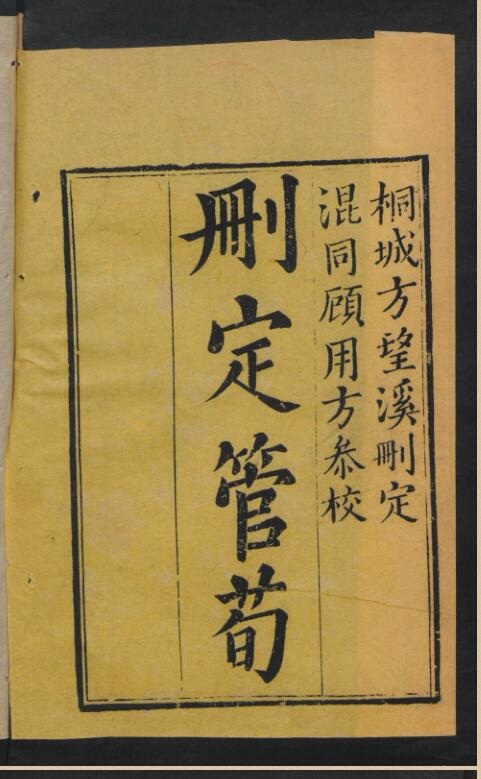 桐城方望溪刪定
混同顧用方叅校
刪定管荀